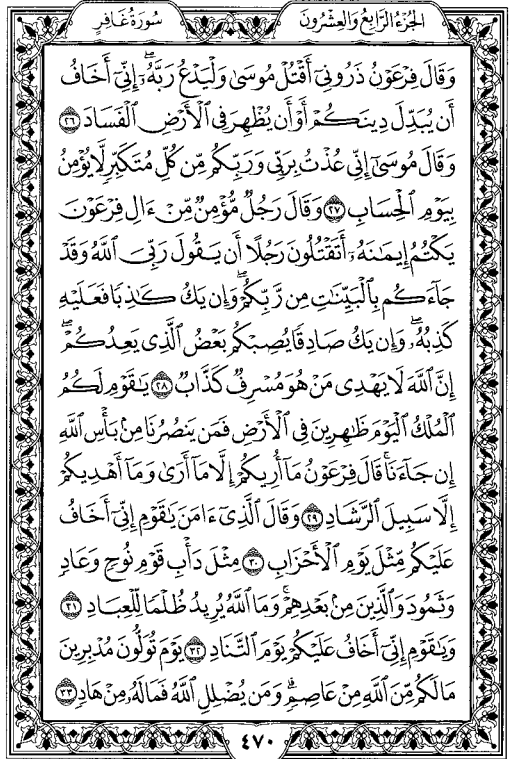 الجزء الرابع والعشرون
سورة غافر
وَقَالَ فِرْعَوْنُ ذَرُونِىٓ أَقْتُلْ مُوسَىٰ وَلْيَدْعُ رَبَّهُۥٓ ۖ إِنِّىٓ أَخَافُ
أَن يُبَدِّلَ دِينَكُمْ أَوْ أَن يُظْهِرَ فِى ٱلْأَرْضِ ٱلْفَسَادَ ٢٦
وَقَالَ مُوسَىٰٓ إِنِّى عُذْتُ بِرَبِّى وَرَبِّكُم مِّن كُلِّ مُتَكَبِّرٍ لَّا يُؤْمِنُ
بِيَوْمِ ٱلْحِسَابِ ٢٧ وَقَالَ رَجُلٌ مُّؤْمِنٌ مِّنْ ءَالِ فِرْعَوْنَ
يَكْتُمُ إِيمَٰنَهُۥٓ أَتَقْتُلُونَ رَجُلًا أَن يَقُولَ رَبِّىَ ٱللَّهُ وَقَدْ
جَآءَكُم بِٱلْبَيِّنَٰتِ مِن رَّبِّكُمْ ۖ وَإِن يَكُ كَٰذِبًا فَعَلَيْهِ
كَذِبُهُۥ ۖ وَإِن يَكُ صَادِقًا يُصِبْكُم بَعْضُ ٱلَّذِى يَعِدُكُمْ ۖ
إِنَّ ٱللَّهَ لَا يَهْدِى مَنْ هُوَ مُسْرِفٌ كَذَّابٌ ٢٨ يَٰقَوْمِ لَكُمُ
ٱلْمُلْكُ ٱلْيَوْمَ ظَٰهِرِينَ فِى ٱلْأَرْضِ فَمَن يَنصُرُنَا مِنۢ بَأْسِ ٱللَّهِ
إِن جَآءَنَا ۚ قَالَ فِرْعَوْنُ مَآ أُرِيكُمْ إِلَّا مَآ أَرَىٰ وَمَآ أَهْدِيكُمْ
إِلَّا سَبِيلَ ٱلرَّشَادِ ٢٩ وَقَالَ ٱلَّذِىٓ ءَامَنَ يَٰقَوْمِ إِنِّىٓ أَخَافُ
عَلَيْكُم مِّثْلَ يَوْمِ ٱلْأَحْزَابِ ٣٠ مِثْلَ دَأْبِ قَوْمِ نُوحٍ وَعَادٍ
وَثَمُودَ وَٱلَّذِينَ مِنۢ بَعْدِهِمْ ۚ وَمَا ٱللَّهُ يُرِيدُ ظُلْمًا لِّلْعِبَادِ ٣١
وَيَٰقَوْمِ إِنِّىٓ أَخَافُ عَلَيْكُمْ يَوْمَ ٱلتَّنَادِ ٣٢ يَوْمَ تُوَلُّونَ مُدْبِرِينَ
مَا لَكُم مِّنَ ٱللَّهِ مِنْ عَاصِمٍ ۗ وَمَن يُضْلِلِ ٱللَّهُ فَمَا لَهُۥ مِنْ هَادٍ ٣٣
٤٧٠